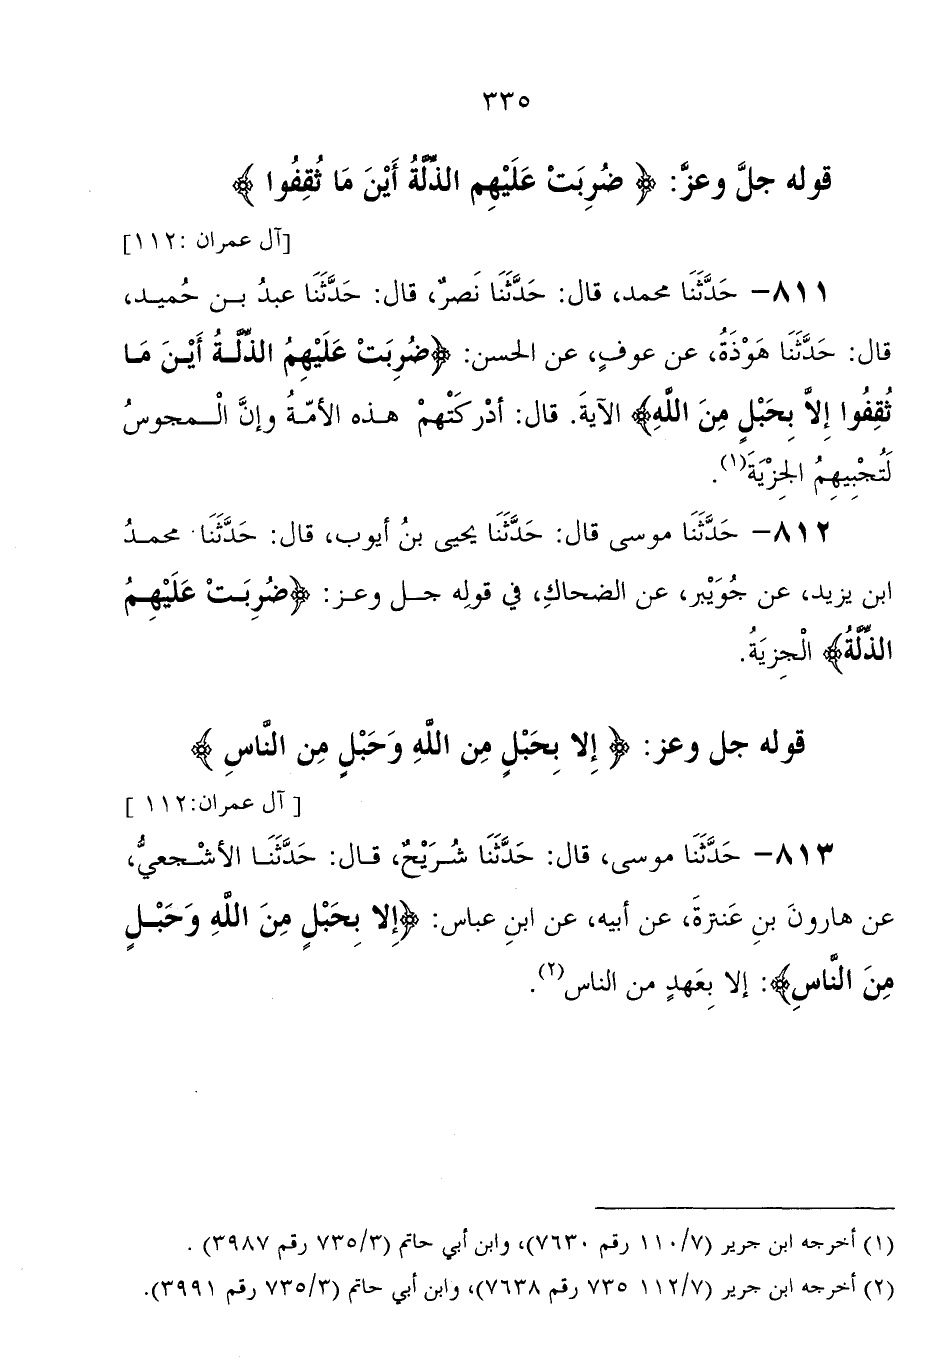 ٣٣٥
قوله جلَّ وعزَّ: ﴿ ضُرِبَتْ عَلَيْهِم الذِّلَّةُ أَيْنَ مَا ثُقِفُوا ﴾
[آل عمران :١١٢]
٨١١- حَدَّثَنَا محمد، قال: حَدَّثَنَا نَصرٌ، قال: حَدَّثَنَا عبدُ بـن حُميـد،
قال: حَدَّثَنَا هَوْذَةُ، عن عوفٍ، عن الحسن: ﴿ضُرِبَتْ عَلَيْهِمُ الذِّلَّـةُ أَيْـنَ مَـا
ثُقِفُوا إِلاَّ بِحَبْلٍ مِنَ اللَّهِ﴾ الآيةَ. قال: أدْركَتْهمْ هـذه الأمّـةُ وإنَّ الْـمجوسُ
لَتُجْبِيهِمُ الجِزْيَةَ(١).
٨١٢- حَدَّثَنَا موسى قال: حَدَّثَنَا يحيى بنُ أيوب، قال: حَدَّثَنَا محمـدُ
ابن يزيد، عن جُوَيْبر، عن الضحاكِ، في قولِه جـل وعـز: ﴿ضُرِبَـتْ عَلَيْهِـمُ
الذِّلَّةُ﴾ الْجِزيَةُ.
قوله جل وعز: ﴿ إِلا بِحَبْلٍ مِن اللَّهِ وَحَبْلٍ مِن النَّاسِ ﴾
[ آل عمران:١١٢ ]
٨١٣- حَدَّثَنَا موسى، قال: حَدَّثَنَا شُـرَيْحٌ، قـال: حَدَّثَنَـا الأشْـجعيُّ،
عن هارونَ بنِ عَنترةَ، عن أبيه، عن ابنِ عباس: ﴿إِلا بِحَبْلٍ مِنَ اللَّهِ وَحَبْـلٍ
مِنَ النَّاسِ﴾: إلا بِعَهدٍ من الناس(٢).
(١) أخرجه ابن جرير (١١٠/٧ رقم ٧٦٣٠)، وابن أبي حاتم (٧٣٥/٣ رقم ٣٩٨٧) .
(٢) أخرجه ابن جرير (١١٢/٧ ٧٣٥ رقم ٧٦٣٨)، وابن أبي حاتم (٧٣٥/٣ رقم ٣٩٩١).